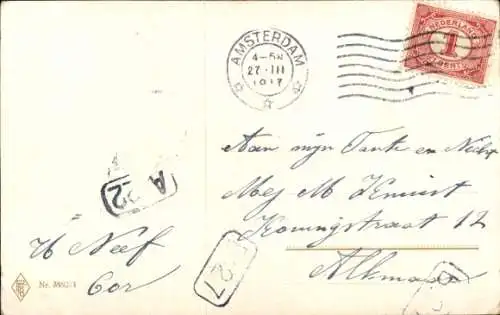 AMSTERDAM
4-5N
27.III
1917
NEDERLAND
1
CENT
Aan mijn Tante en Nicht
Mej M
Koningstraat 12
Alkmaar
A 22
Uw Neef
Cor
27
Nr.